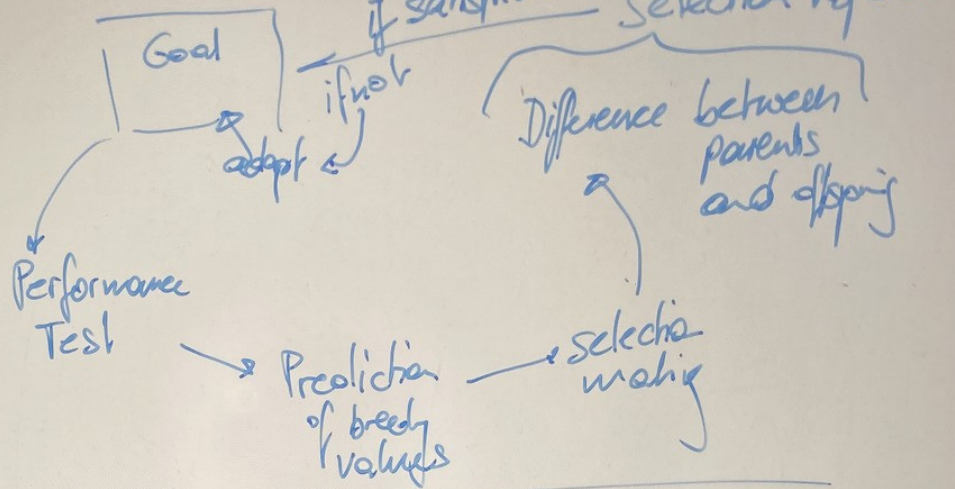 if
Selection
Goal
if not
adapt
Difference between
parents
and offspring
Performance
Test
Prediction
of breedg
values
selection
mating